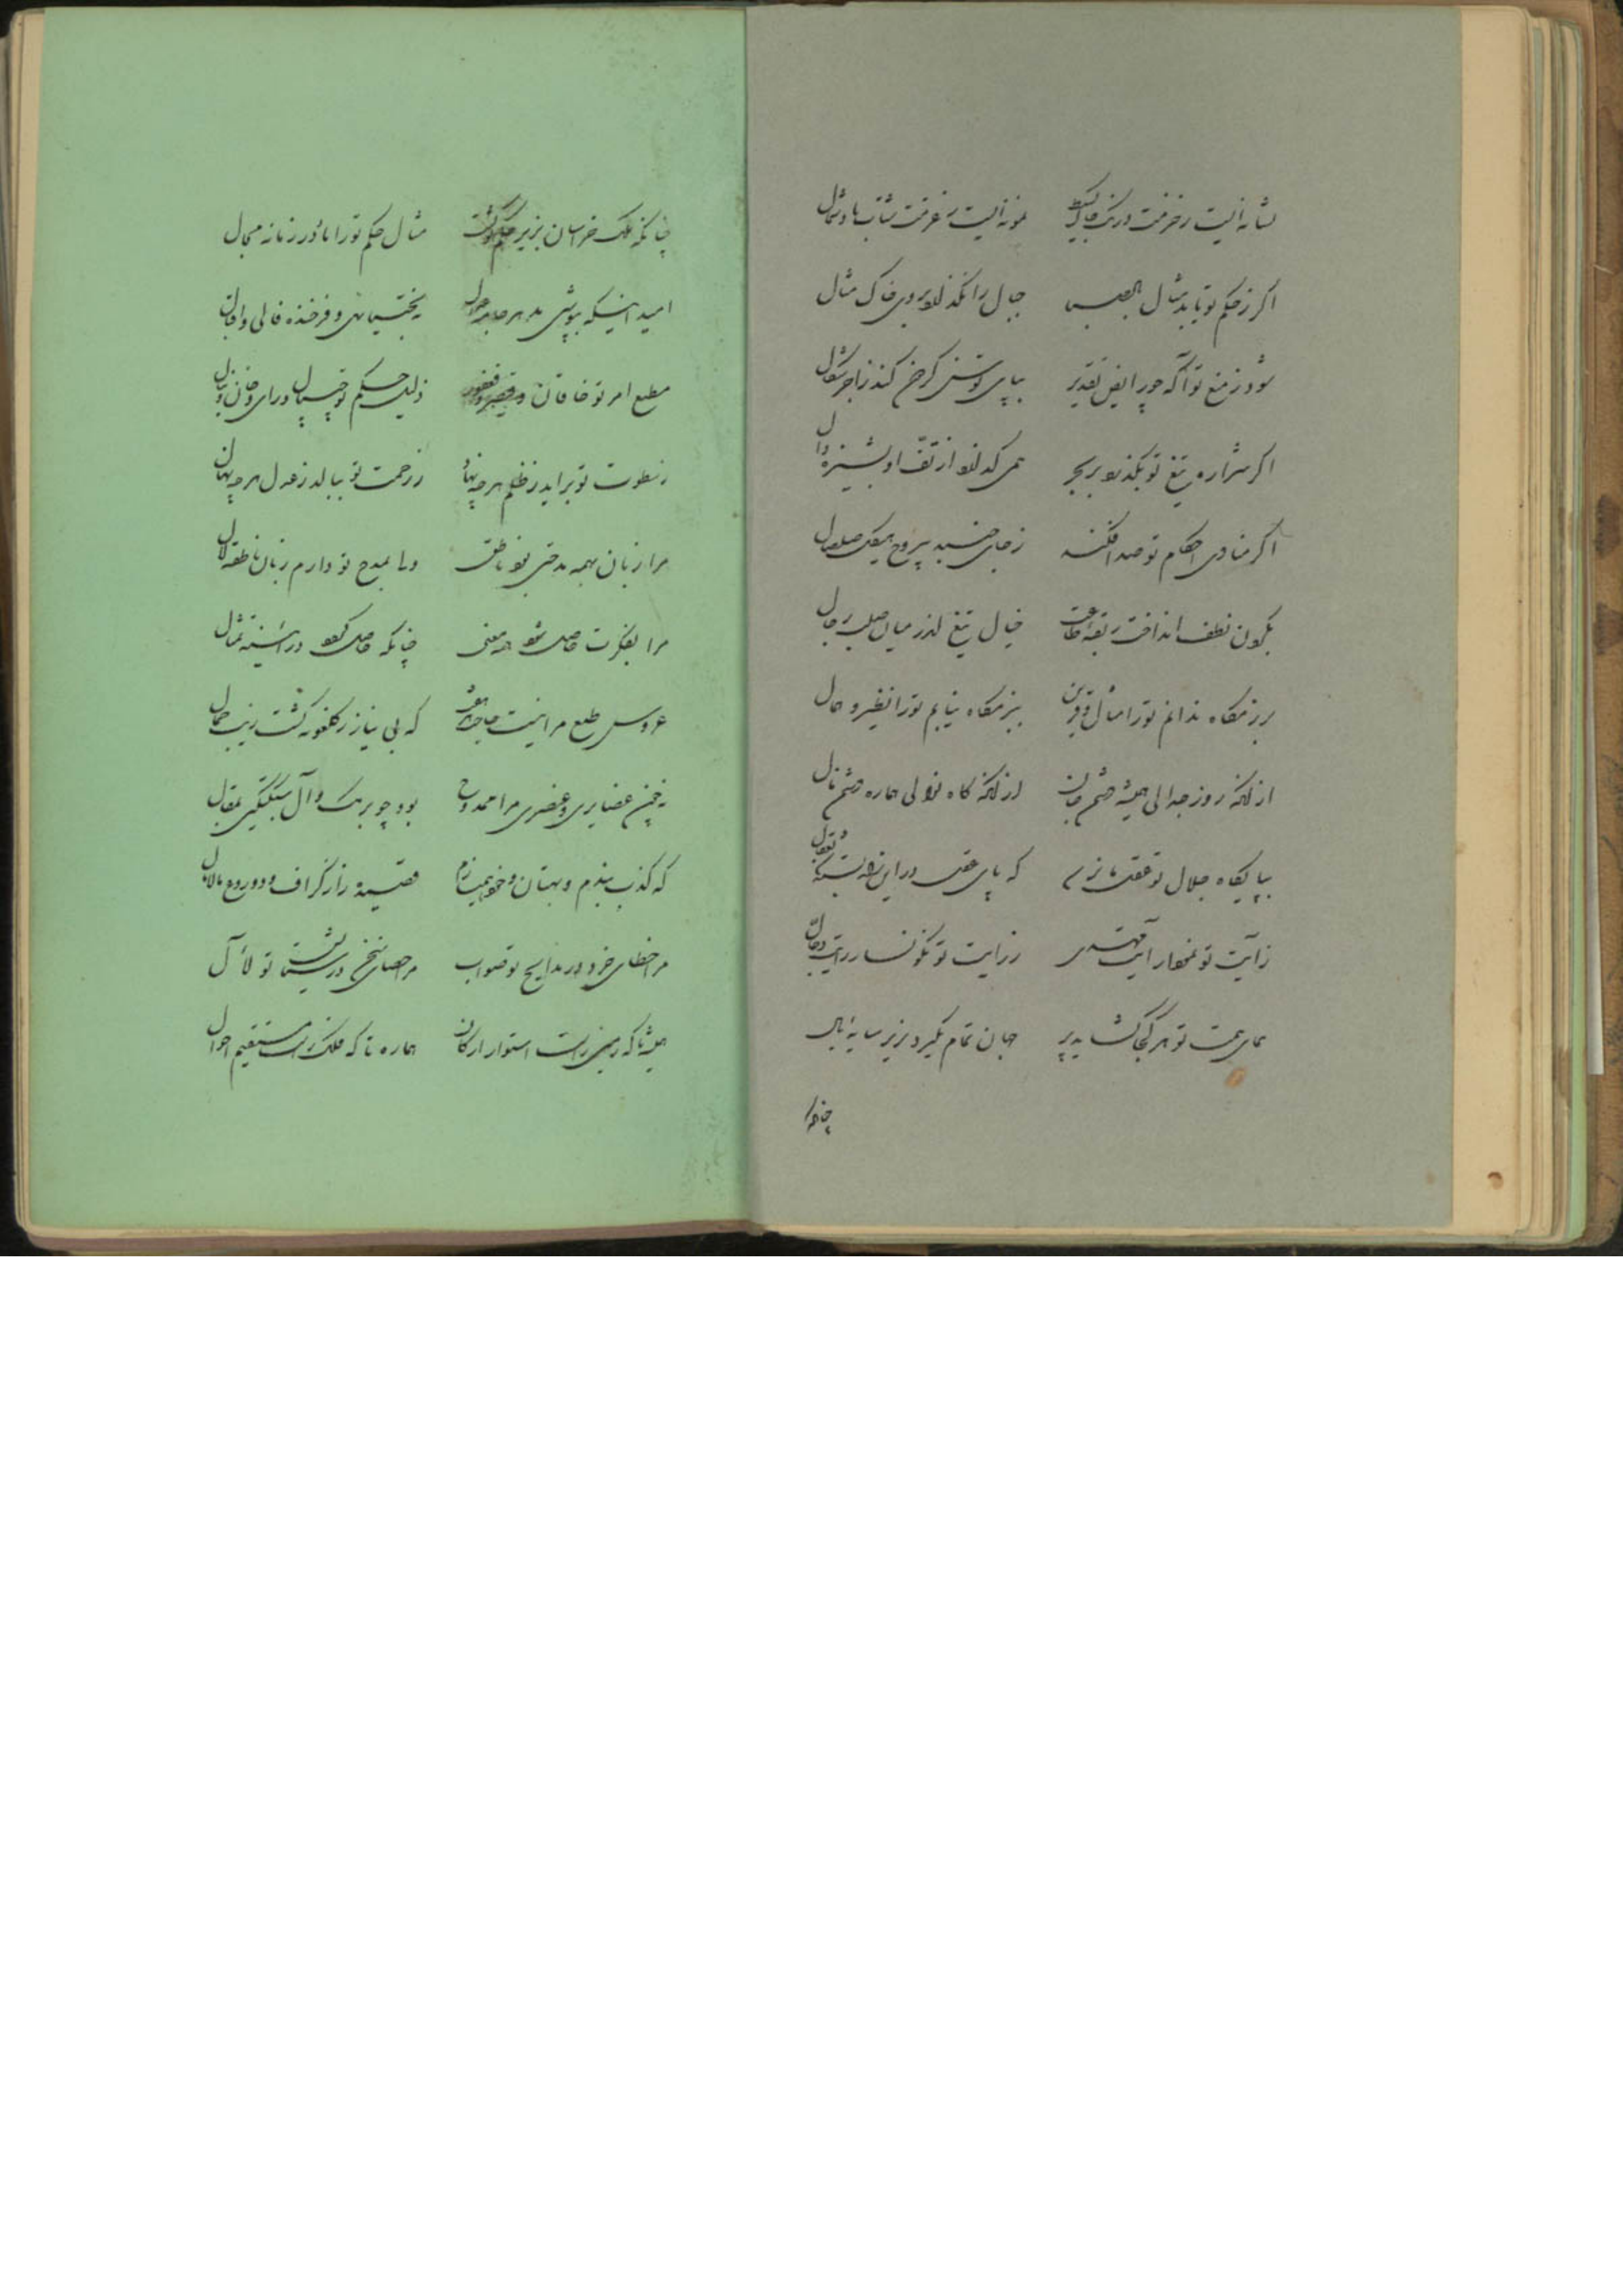 نشانه ایست ز حزمت درنگ خاک بسیط نمونه ایست ز عزمت شتاب باد شمال
اگر ز حکم تو یابد مثال جبال را نگذارد بروی خاک مثال
شود ز منع تو آگه چو رایض تقدیر بپای توسن گر چرخ کند ز اجر شکال
اگر شراره تیغ تو بگذرد بر بحر همی گدازد از تف او پشیزه وال
اگر منادی احکام تو صدا فکند ز جای جنبد بیروح هیکل صلصال
بکون نطفه انداخت ربقه طاعت خیال تیغ تو اندر میان صلب رجال
برزمگاه ندانم تو را مثال و قرین ببزمگاه نیابم تو را نظیر و همال
از آنکه روز جدالی همیشه خصم جان از آنکه گاه نوالی هماره خصم مال
بپایگاه جلال تو عقل ما نرسد که پای عقل در این ره بسته عقال
ز آیت تو نمودار آیت مهدی ز رایت تو نگونسار رایت دجال
همای همت تو هر کجا گشاید پر جهان تمام بگیرد بزیر سایه بال
چنانکه
چنانکه ملک خراسان بزیر حکم تو گشت مثال حکم تو را باد در زمانه مجال
امید اینکه بپوشی بخجستهای و فرخنده فالی و اقبال
مطیع امر تو خاقان و قیصر و فغفور ذلیل حکم تو چیپال و رای و خان و ینال
ز سطوت تو برآید ز ظلم هر چه نهاد ز رحمت تو ببالد ز عدل هر چه نهال
مرا زبان بهمه مدحتی بود ناطق ولی بمدح تو دارم زبان ناطقه لال
مرا بفکرت حاصل شود همه معنی چنانکه حاصل گردد در آینه تمثال
عروس طبع مرا نیست حاجت که بی نیاز ز گلگونه گشت زیب جمال
نه چون غضایری و عنصری مرا ممدوح بود چو برمک و آل سبکتگین بمقال
که کذب بندم و بهتان و خوانمش قصیده را ز گزاف و دروغ مالامال
مر اخطای خرد در مدایح تو صواب مر حصای سخن در ستایش تو لآل
همیشه تا که زمین راست استوار ارکان هماره تا که فلک راست مستقیم احوال